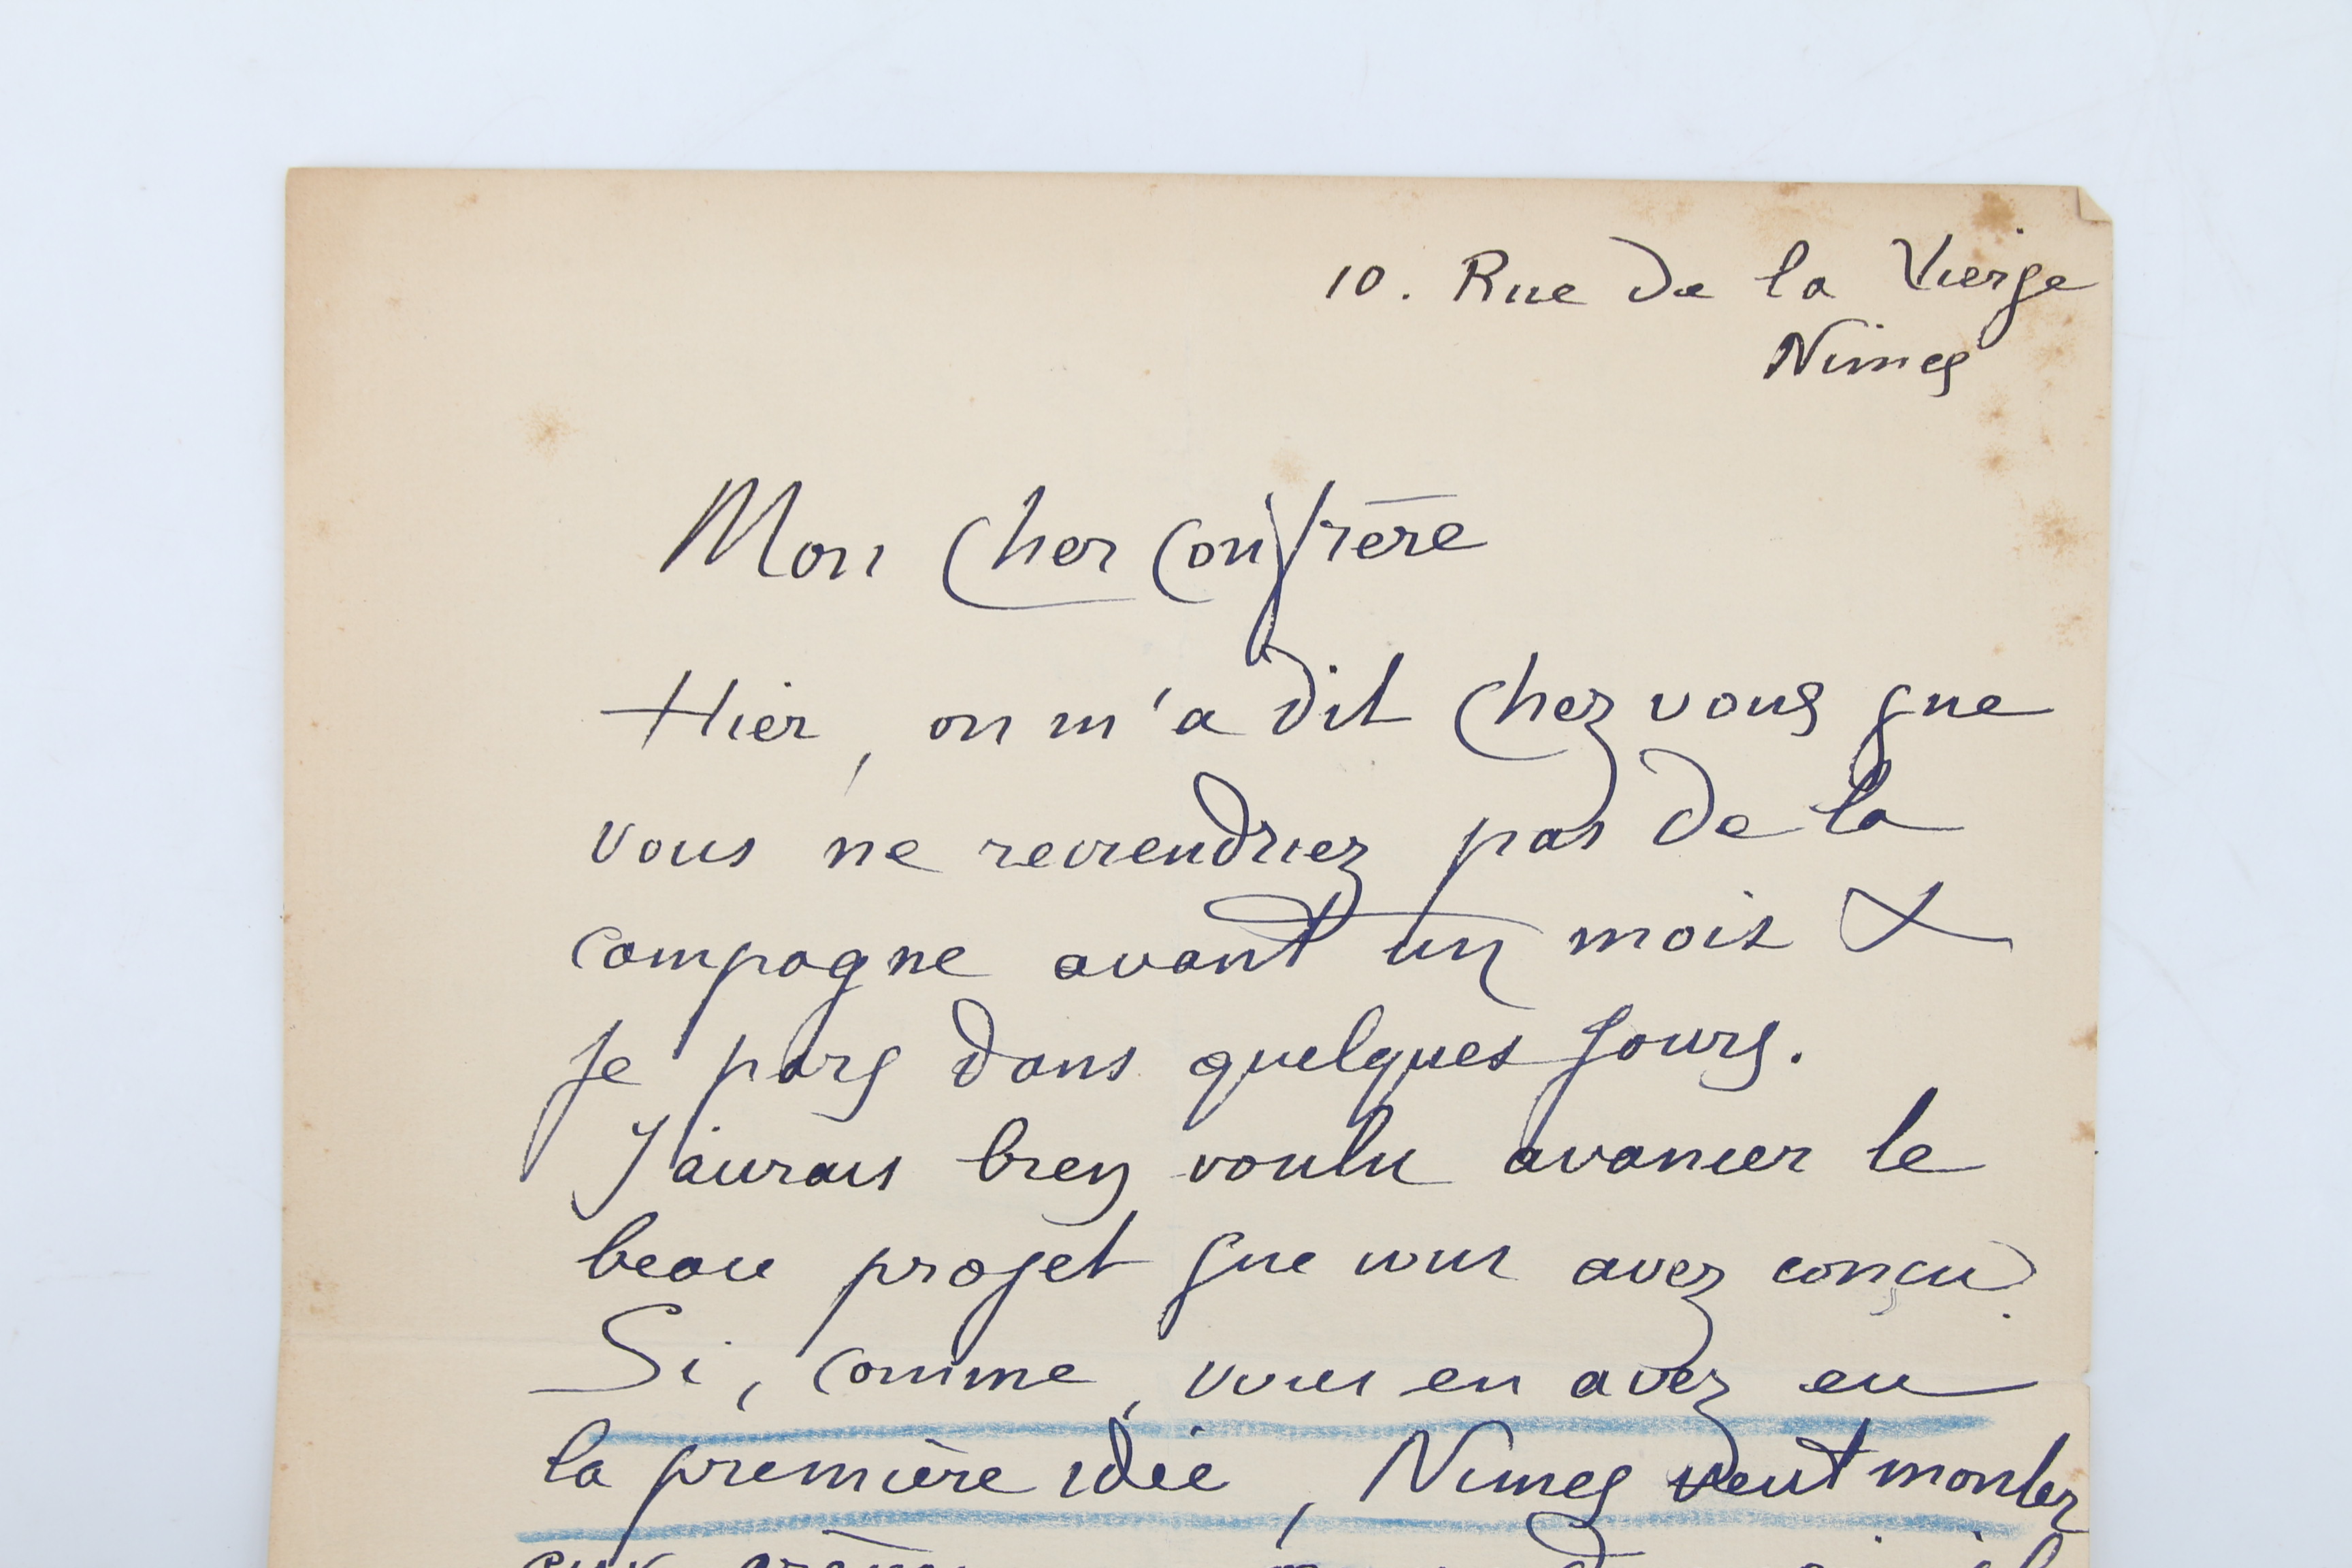 10. Rue de la Vierge
Nimes
Mon cher confrère
Hier, on m'a dit chez vous que
vous ne reviendriez pas de la
campagne avant un mois &
je pars dans quelques jours.
J'aurais bien voulu avancer le
beau projet que vous avez conçu.
Si, comme, vous en avez eu
la première idée, Nimes veut monter
aux arènes